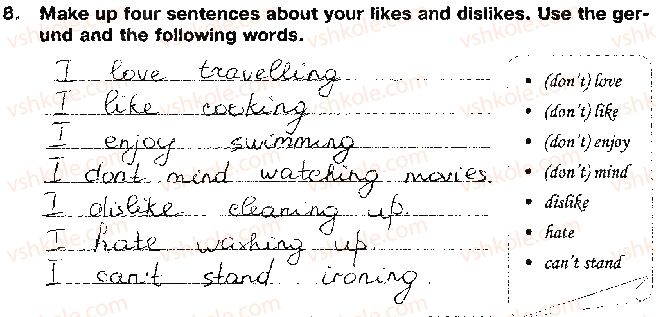 8. Make up four sentences about your likes and dislikes. Use the ger-
und and the following words.
I love travelling
I like cooking
I enjoy swimming
I dont mind watching movies.
I dislike cleaning up.
I hate washing up.
I can't stand ironing.
• (don't) love
• (don't) like
• (don't) enjoy
• (don't) mind
• dislike
• hate
• can't stand